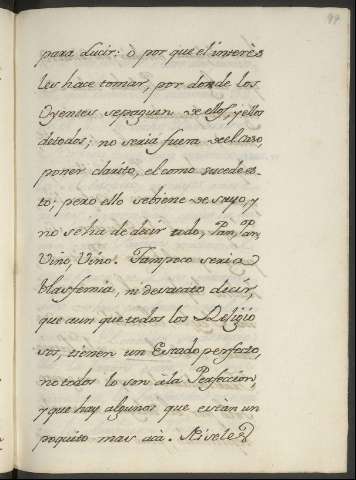 para Lucir: ò por que el interès
les hace tomar, por donde los
Oyentes se paguen de ellos, y ellos
de todos; no seria fuera de el caso,
poner clarito, el como sucede es-
to; pero ello se biene de suyo, y
no se ha de decir todo, Pan, Pan,
Vino, Vino. Tampoco seria
blasfemia, ni desacato decir,
que aun que todos los Religio
sos, tienen un Estado perfecto,
no todos lo son à la Perfeccion,
y que hay algunos que estàn un
poquito mas acà.